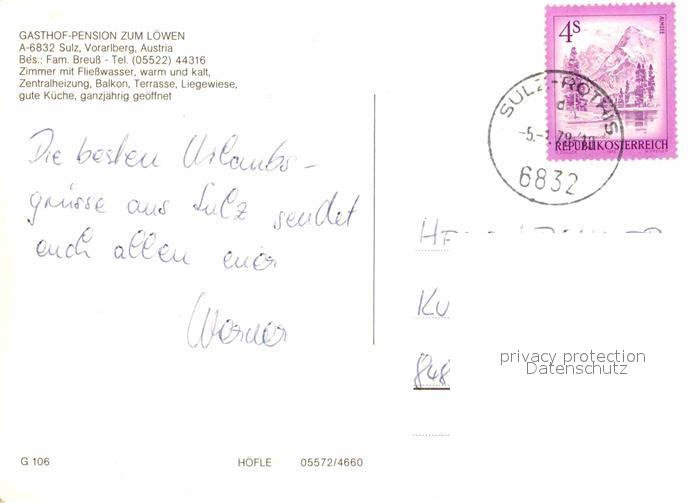 GASTHOF-PENSION ZUM LÖWEN
A-6832 Sulz, Vorarlberg, Austria
Bes.: Fam. Breuß - Tel. (05522) 44316
Zimmer mit Fließwasser, warm und kalt,
Zentralheizung, Balkon, Terrasse, Liegewiese,
gute Küche, ganzjährig geöffnet
4S
ALMSEE
REPUBLIK ÖSTERREICH
SULZ-RÖTHIS
d
6832
Die besten Urlaubs-
grüsse aus Sulz sendet
euch allen euer
Werner
KU
848
privacy protection
Datenschutz
G 106
HÖFLE 05572/4660